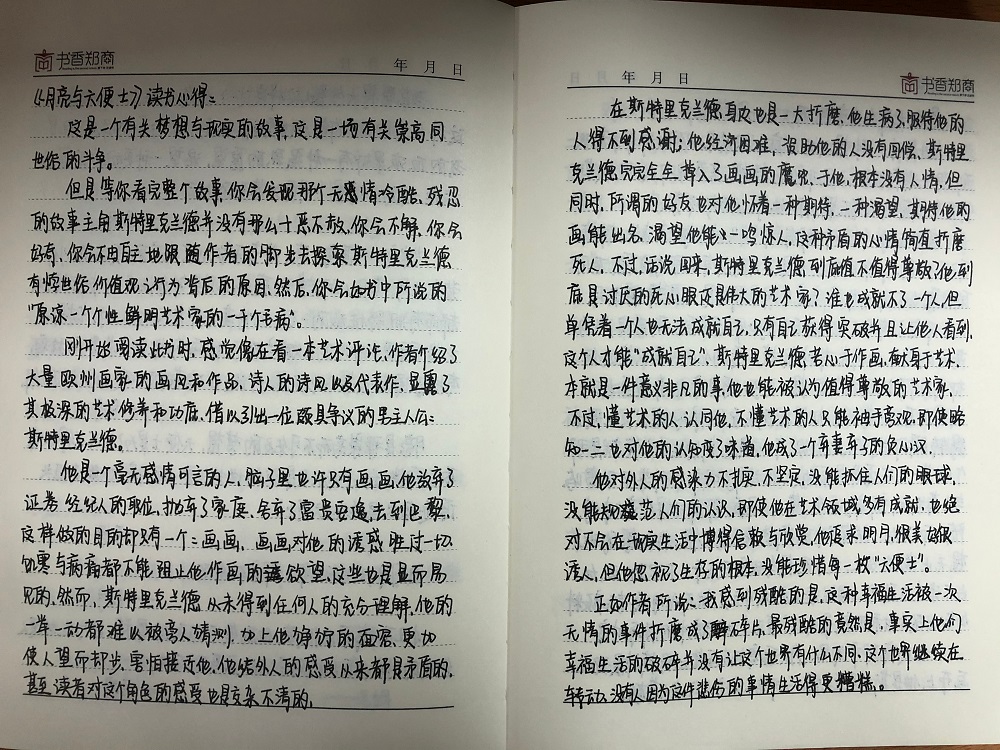 书香郑商
年 月 日
《月亮与六便士》读书心得：
这是一个有关梦想与现实的故事，这是一场有关崇高同
世俗的斗争。
但是等你看完整个故事，你会发现那个无情冷酷、残忍
的故事主角斯特里克兰德并没有那么十恶不赦，你会不解，你会
好奇，你会不由自主地跟随作者的脚步去探索斯特里克兰德
有悖世俗价值观行为背后的原因，然后，你会如书中所说的
“原谅一个个性鲜明艺术家的一千个毛病”。
刚开始阅读此书时，感觉像在看一本艺术评论，作者介绍了
大量欧洲画家的画风和作品，诗人的诗风以及代表作，显露了
其极深的艺术修养和功底，借以引出一位颇具争议的男主人公：
斯特里克兰德。
他是一个毫无感情可言的人，脑子里也许只有画画，他放弃了
证券经纪人的职位，抛弃了家庭，舍弃了富贵安逸，去到巴黎，
这样做的目的却只有一个：画画，画画对他的诱惑胜过一切，
饥寒与病痛都不能阻止他作画的欲望，这些也是显而易
见的，然而，斯特里克兰德从未得到任何人的充分理解，他的
一举一动都难以被旁人猜测，加上他狰狞的面容，更加
使人望而却步，害怕接近他，他给外人的感受从来都是矛盾的，
甚至读者对这个角色的感受也是交杂不清的，
年 月 日
书香郑商
在斯特里克兰德身边也是一大折磨，他生病了，服侍他的
人得不到感谢；他经济困难，资助他的人没有回偿，斯特里
克兰德完完全全掉入了画画的魔窟，于他，根本没有人情，但
同时，所谓的好友也对他怀着一种期待，一种渴望，期待他的
画能出名，渴望他能一鸣惊人，这种矛盾的心情简直折磨
死人，不过，话说回来，斯特里克兰德到底值不值得尊敬？他到
底是讨厌的死心眼还是伟大的艺术家？谁也成就不了一个人，但
单凭着一个人也无法成就自己，只有自己获得突破并且让他人看到，
这个人才能“成就自己”，斯特里克兰德苦心于作画，献身于艺术，
本就是一件意义非凡的事，他也能被认为值得尊敬的艺术家，
不过，懂艺术的人认同他，不懂艺术的人只能袖手旁观，即使略
知一二也对他的认知变了味道，他成了一个弃妻弃子的负心汉，
他对外人的感染力不扎实，不坚定，没能抓住人们的眼球，
没能规范人们的认识，即使他在艺术领域多有成就，也绝
对不会在现实生活中博得信赖与欣赏，他追求明月，很美好很
诱人，但他忽视了生存的根本，没能珍惜每一枚“六便士”。
正如作者所说：我感到残酷的是，这种幸福生活被一次
无情的事件折磨成了碎片，最残酷的竟然是，事实上他们
幸福生活的破碎并没有让这个世界有什么不同，这个世界继续在
转动，没有人因为这件悲伤的事情生活得更糟糕。